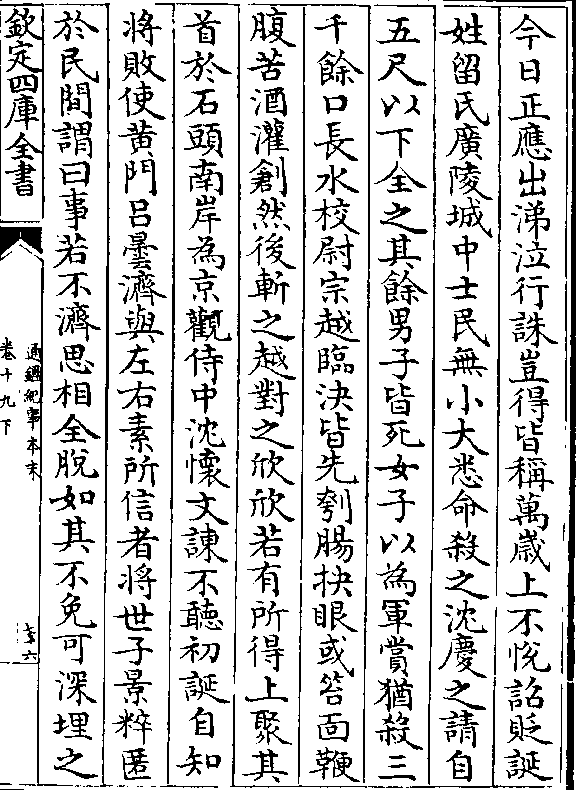 今日正應出涕泣行誅豈得皆稱萬歲上不悅詔貶誕
姓留氏廣陵城中士民無小大悉命殺之沈慶之請自
五尺以下全之其餘男子皆死女子以為軍賞猶殺三
千餘口長水校尉宗越臨決皆先刳腸抉眼或笞面鞭
腹苦酒灌創然後斬之越對之欣欣若有所得上聚其
首於石頭南岸為京觀侍中沈懷文諫不聽初誕自知
將敗使黄門呂曇濟與左右素所信者將世子景粹匿
於民間謂曰事若不濟思相全脫如其不免可深埋之
欽定四庫全書
通鑑紀事本末
卷十九下